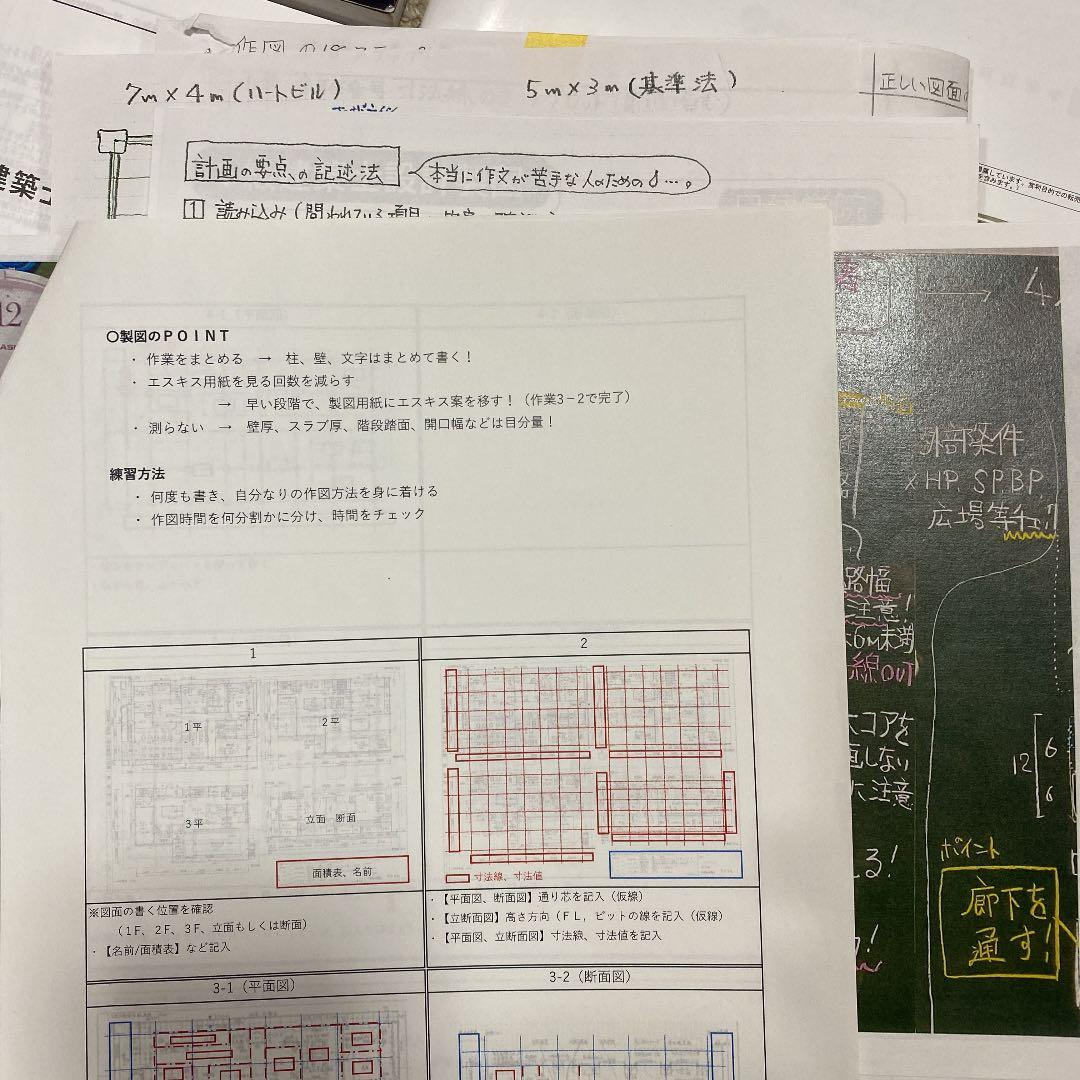 7m×4m(ハートビル)
5m×3m(基準法)
正しい図面
計画の要点の記述法
本当に作文が苦手な人のための
1 読み込み(問われている項目
〇製図のPOINT
・ 作業をまとめる → 柱、壁、文字はまとめて書く!
・ エスキス用紙を見る回数を減らす
→ 早い段階で、製図用紙にエスキス案を移す!(作業3-2で完了)
・ 測らない → 壁厚、スラブ厚、階段踏面、開口幅などは目分量!
練習方法
・ 何度も書き、自分なりの作図方法を身に着ける
・ 作図時間を何分割かに分け、時間をチェック
1
2
1平
2平
3平
立面 断面
面積表、名前
寸法線、寸法値
※図面の書く位置を確認
(1F、2F、3F、立面もしくは断面)
・【名前/面積表】など記入
・【平面図、断面図】通り芯を記入(仮線)
・【立断面図】高さ方向(FL,ピットの線を記入(仮線)
・【平面図、立断面図】寸法線、寸法値を記入
3-1(平面図)
3-2(断面図)
外部条件
×HP.SP.BP.
広場等
路幅
注意!
6m未満
線OUT
コアを
しない
注意
12
6
6
る!
ポイント
廊下を
通す!